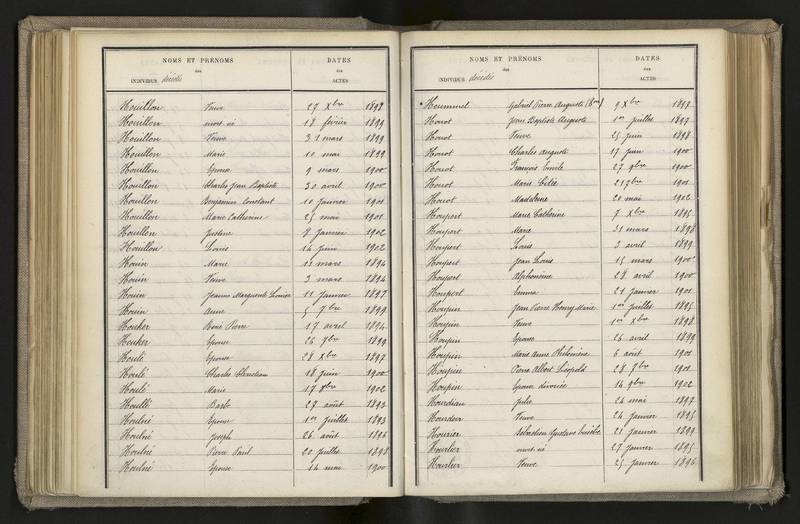 NOMS ET PRÉNOMS DATES
des des
INDIVIDUS décédés ACTES
Houillon Veuve 27 Xbre 1898
Houillon mort né 18 février 1899
Houillon Veuve 31 mars 1899
Houillon Marie 10 mai 1899
Houillon Epouse 9 mars 1900
Houillon Charles Jean Baptiste 30 avril 1900
Houillon Benjamin Constant 10 Janvier 1901
Houillon Marie Catherine 25 mai 1901
Houillon Justine 8 Janvier 1902
Houillon Louis 14 Juin 1902
Houin Marie 13 mars 1894
Houin Veuve 3 mars 1894
Houin Jeanne Marguerite 11 Janvier 1897
Houin Anne 5 7bre 1899
Houker Pierre 17 avril 1894
Houker Epouse 26 9bre 1899
Houli Epouse 28 Xbre 1897
Houli Charles Christian 18 Juin 1900
Houli Marie 17 Xbre 1902
Houllé Barbe 27 août 1893
Houlné Epouse 1er Juillet 1893
Houlné Joseph 26 août 1896
Houlné Pierre Paul 20 Juillet 1898
Houlné Epouse 14 mai 1900
NOMS ET PRÉNOMS DATES
des des
INDIVIDUS décédés ACTES
Hoummel Gabriel Pierre Auguste 9 Xbre 1899
Houot Jean Baptiste Auguste 1er Juillet 1897
Houot Veuve 25 Juin 1898
Houot Charles Auguste 17 Juin 1900
Houot François Emile 27 9bre 1900
Houot Marie 1901
Houot Madeleine 20 mai 1902
Houpert Marie Catherine 7 Xbre 1895
Houpert Marie 31 mars 1898
Houpert Louis 3 avril 1899
Houpert Jean Louis 15 mars 1900
Houpert Alphonsine 28 avril 1900
Houpert Emma 21 Janvier 1901
Houpin Jean Pierre Henry Marie 1er Juillet 1895
Houpin Veuve 1er Xbre 1898
Houpin Epouse 26 avril 1899
Houpin Marie Anne Philomène 6 août 1901
Houpin Pierre Albert Léopold 28 7bre 1901
Houpin Epouse divorcée 14 9bre 1902
Hourdiau Julie 24 mai 1897
Hourdoir Veuve 24 Janvier 1895
Hourier Sébastien Gustave Eusèbe 21 Janvier 1899
Hourlier mort né 27 Janvier 1895
Hourlier Veuve 25 Janvier 1896